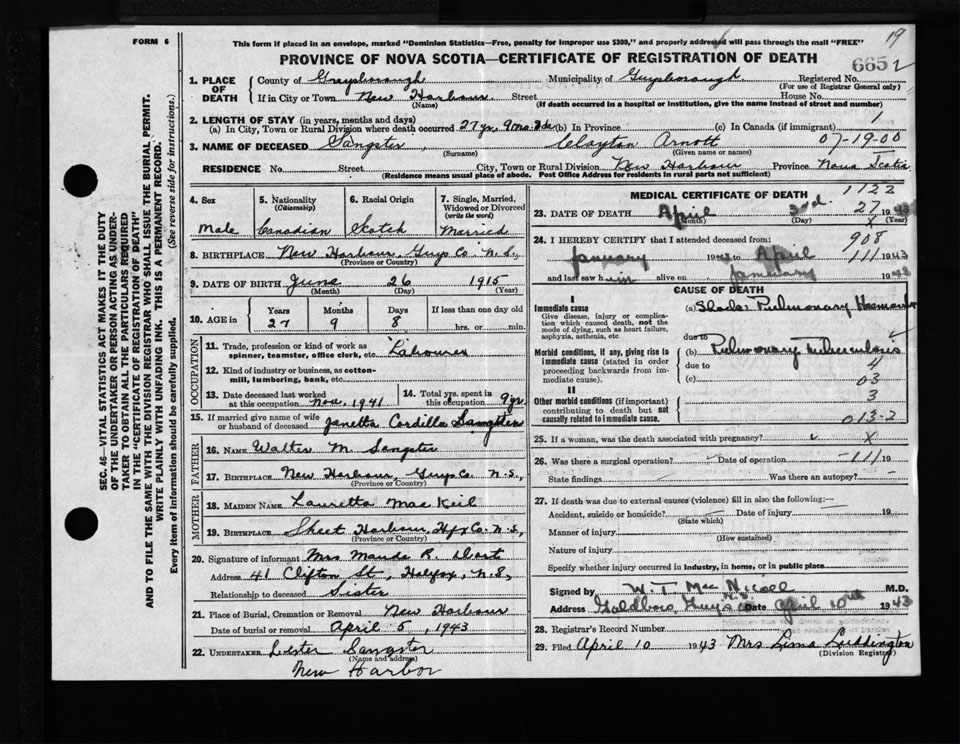 FORM 6
This form if placed in an envelope, marked "Dominion Statistics—Free, penalty for improper use $300," and properly addressed will pass through the mail "FREE"
19
PROVINCE OF NOVA SCOTIA—CERTIFICATE OF REGISTRATION OF DEATH
665 2
1. PLACE OF DEATH
County of Guysborough Municipality of Guysborough Registered No.
(For use of Registrar General only)
If in City or Town New Harbour Street House No.
(Name) (If death occurred in a hospital or institution, give the name instead of street and number)
2. LENGTH OF STAY (in years, months and days) 1
(a) In City, Town or Rural Division where death occurred 27 yr. 9 mo. 8 ds (b) In Province (c) In Canada (if immigrant)
3. NAME OF DECEASED Sangster, Clayton Arnott 07-19-00
(Surname) (Given name or names)
RESIDENCE No. Street City, Town or Rural Division New Harbour Province Nova Scotia
(Residence means usual place of abode. Post Office Address for residents in rural parts not sufficient)
4. Sex
Male
5. Nationality
(Citizenship)
Canadian
6. Racial Origin
Scotch
7. Single, Married, Widowed or Divorced
(write the word)
Married
8. BIRTHPLACE New Harbour, Guys Co. N.S.,
(Province or Country)
9. DATE OF BIRTH June 26 1915
(Month) (Day) (Year)
10. AGE in
Years Months Days If less than one day old
27 9 8 hrs. or min.
OCCUPATION
11. Trade, profession or kind of work as spinner, teamster, office clerk, etc. Labourer
12. Kind of industry or business, as cotton-mill, lumbering, bank, etc.
13. Date deceased last worked at this occupation Nov. 1941
14. Total yrs. spent in this occupation 9 yr.
15. If married give name of wife or husband of deceased Janetta Cordilla Sangster
FATHER
16. Name Walter M. Sangster
17. Birthplace New Harbour, Guys Co. N.S.,
(Province or Country)
MOTHER
18. Maiden Name Lauretta Mac Keil
19. Birthplace Sheet Harbour, Hfx Co. N.S.,
(Province or Country)
20. Signature of informant Mrs Maude R. Dort
Address 41 Clifton St, Halifax, N.S,
Relationship to deceased Sister
21. Place of Burial, Cremation or Removal New Harbour
Date of burial or removal April 5, 1943
22. UNDERTAKER Lester Sangster
(Name and address)
New Harbor
MEDICAL CERTIFICATE OF DEATH 1122
23. DATE OF DEATH April 3rd. 27 1943
(Month) (Day) X (Year)
24. I HEREBY CERTIFY that I attended deceased from: 908
January 1943 to April 111 1943
and last saw him alive on January 19
CAUSE OF DEATH
I
Immediate cause
Give disease, injury or complication which caused death, not the mode of dying, such as heart failure, asphyxia, asthenia, etc
(a) Pulmonary
due to
Morbid conditions, if any, giving rise to immediate cause (stated in order proceeding backwards from immediate cause).
(b) Pulmonary Tuberculosis
due to 4
(c) 03
II
Other morbid conditions (if important) contributing to death but not causally related to immediate cause.
3
013-2
25. If a woman, was the death associated with pregnancy? X
26. Was there a surgical operation? Date of operation -111 19
State findings Was there an autopsy?
27. If death was due to external causes (violence) fill in also the following:—
Accident, suicide or homicide? Date of injury 19
(State which)
Manner of injury
(How sustained)
Nature of injury
Specify whether injury occurred in industry, in home, or in public place
Signed by W T MacNicoll M.D.
Address Goldboro, Guys Co Date April 10th 1943
28. Registrar's Record Number
29. Filed April 10 1943 Mrs Lima Luddington
(Division Registrar)
SEC. 46—VITAL STATISTICS ACT MAKES IT THE DUTY OF THE UNDERTAKER OR PERSON ACTING AS UNDERTAKER TO OBTAIN ALL THE PARTICULARS REQUIRED IN THE "CERTIFICATE OF REGISTRATION OF DEATH"
AND TO FILE THE SAME WITH THE DIVISION REGISTRAR WHO SHALL ISSUE THE BURIAL PERMIT.
WRITE PLAINLY WITH UNFADING INK. THIS IS A PERMANENT RECORD.
Every item of information should be carefully supplied. (See reverse side for instructions.)